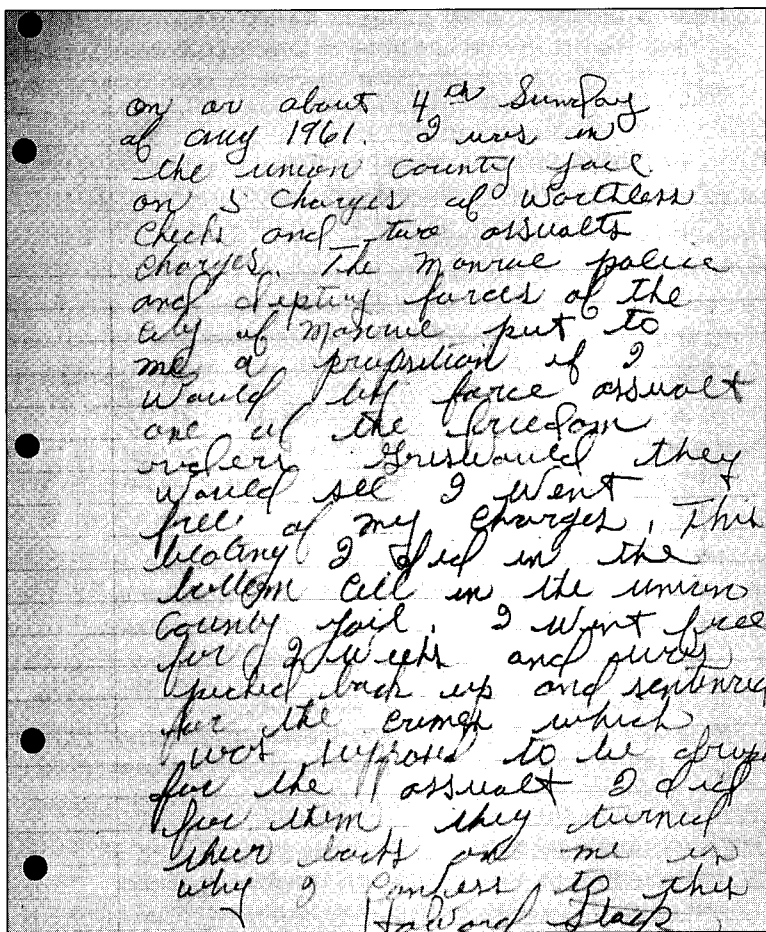 on or about 4th Sunday
of aug 1961. I was in
the union county jail
on 5 charges of worthless
checks and two assualts
charges. The Monroe police
and depting forces of the
city of Monroe put to
me a propsition if I
would by force assualt
one of the freedom
riders Griswould they
would see I went
free of my charges. This
beating I did in the
bottom cell in the union
county jail. I went free
for 2 weeks and was
picked back up and sentenced
for the crimes which
was suposed to be
for the assualt I did
for them they turned
their backs on me is
why I confess to this
Stack